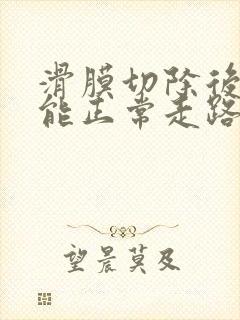 滑膜切除後
能正常走路
望晨莫及